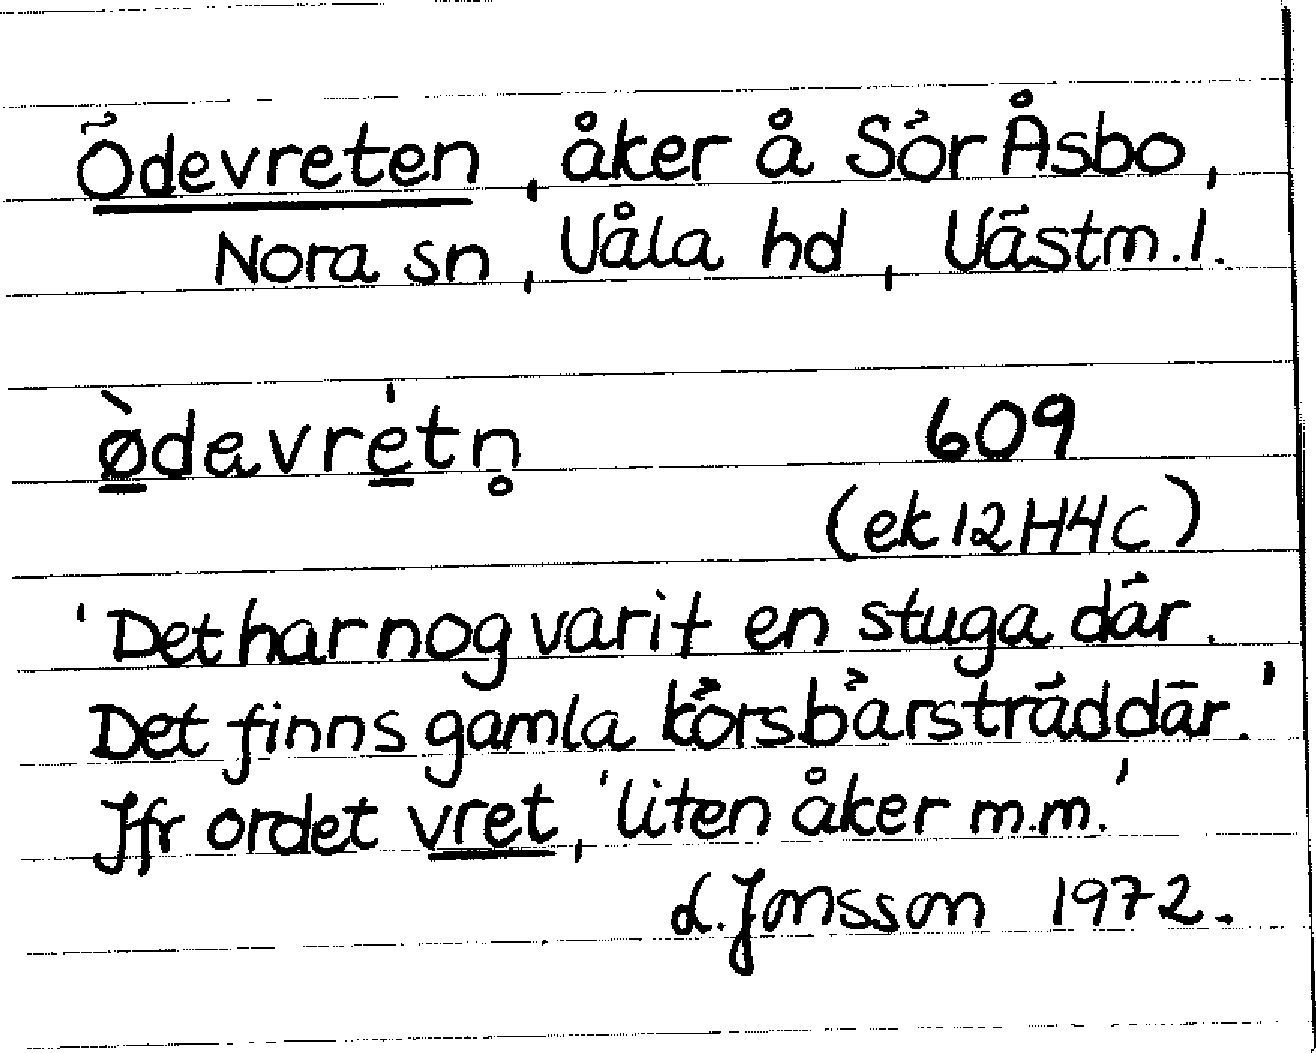 Ödevreten, åker å Sör Åsbo,
Nora sn, Våla hd, Västm.l.
ø̲̀devré̲tn̥ 609
(ek 12H4c)
'Det har nog varit en stuga där.
Det finns gamla körsbärsträd där.'
Jfr ordet vret, 'liten åker m.m.'
L. Jonsson 1972.